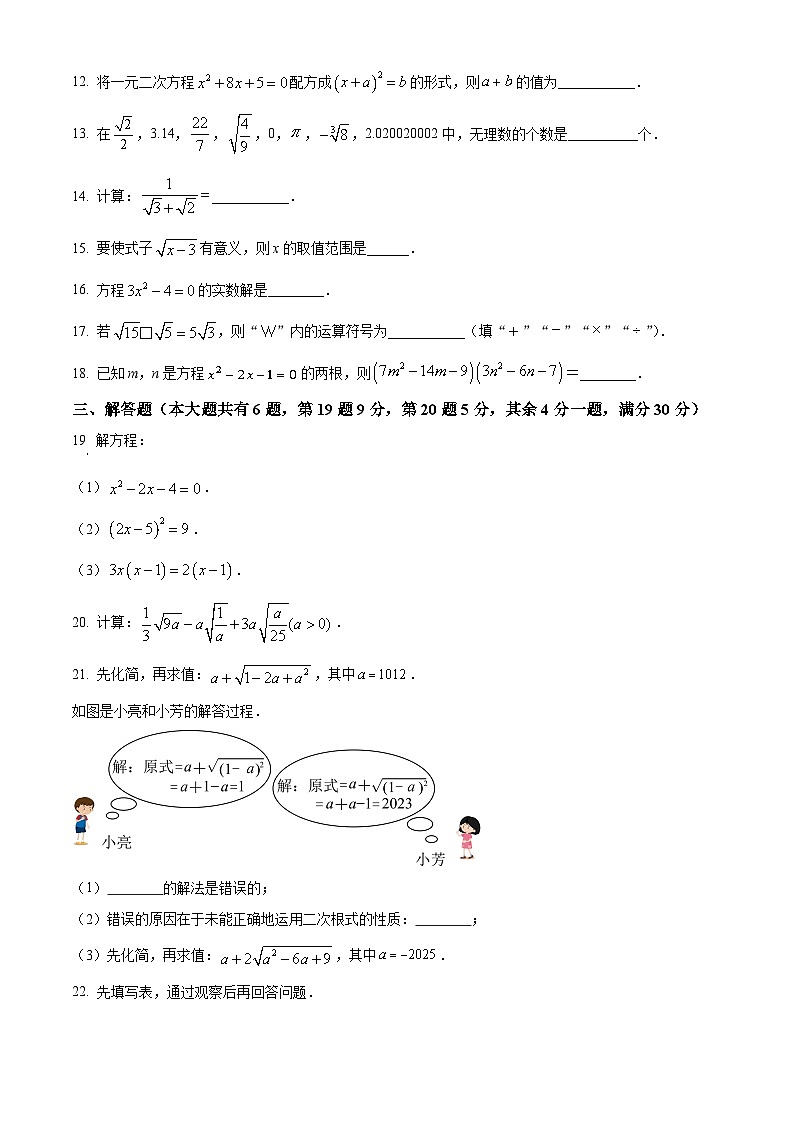 12. 将一元二次方程 x² + 8x + 5 = 0 配方成 (x + a)² = b 的形式，则 a + b 的值为___________．
13. 在 √2/2，3.14，22/7，√(4/9)，0，π，−∛8，2.020020002 中，无理数的个数是__________个．
14. 计算：1/(√3 + √2) = ___________．
15. 要使式子 √(x − 3) 有意义，则 x 的取值范围是______．
16. 方程 3x² − 4 = 0 的实数解是________．
17. 若 √15 □ √5 = 5√3，则“W”内的运算符号为___________（填“＋”“－”“×”“÷”）．
18. 已知 m，n 是方程 x² − 2x − 1 = 0 的两根，则 (7m² − 14m − 9)(3n² − 6n − 7) = ________．
三、解答题（本大题共有 6 题，第 19 题 9 分，第 20 题 5 分，其余 4 分一题，满分 30 分）
19. 解方程：
（1）x² − 2x − 4 = 0．
（2）(2x − 5)² = 9．
（3）3x(x − 1) = 2(x − 1)．
20. 计算：1/3 √(9a) − a√(1/a) + 3a√(a/25) (a > 0)．
21. 先化简，再求值：a + √(1 − 2a + a²)，其中 a = 1012．
如图是小亮和小芳的解答过程．
解：原式=a+√(1− a)²
=a+1−a=1
小亮
解：原式=a+√(1− a)²
=a+a−1=2023
小芳
（1）________的解法是错误的；
（2）错误的原因在于未能正确地运用二次根式的性质：________；
（3）先化简，再求值：a + 2√(a² − 6a + 9)，其中 a = −2025．
22. 先填写表，通过观察后再回答问题．